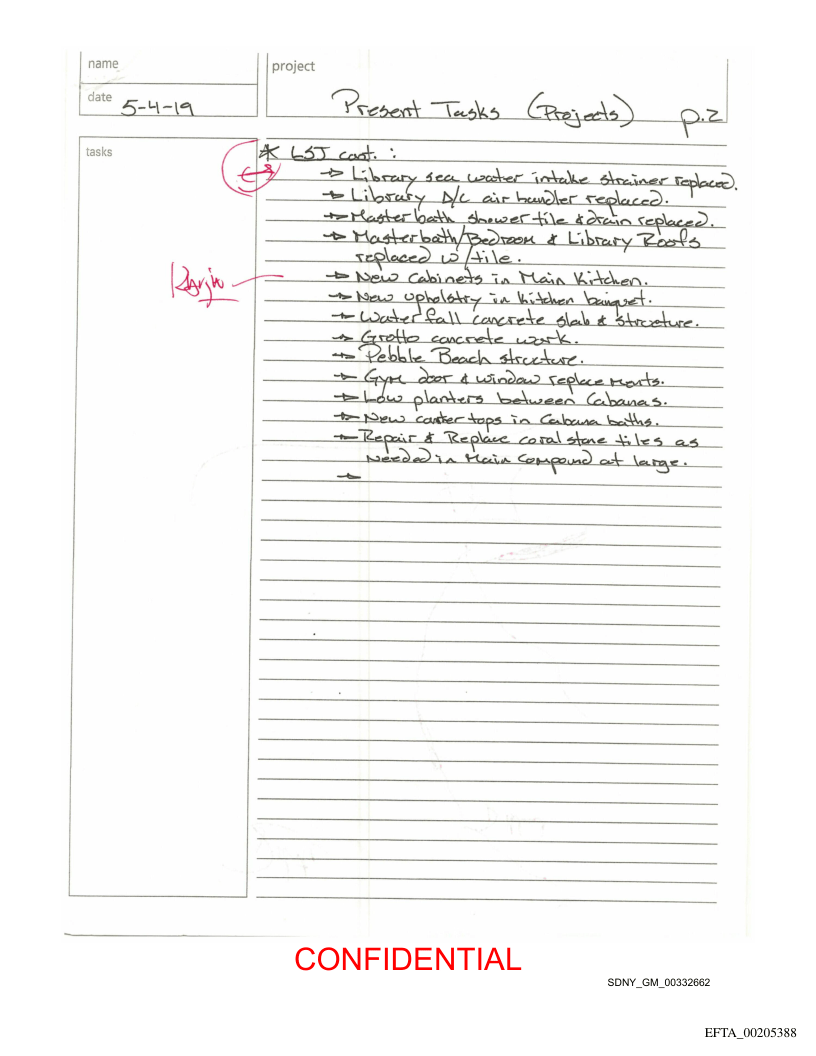 name
project
date 5-4-19
Present Tasks (Projects) p.2
tasks
* LSJ cont. :
→ Library sea water intake strainer replaced.
→ Library A/C air handler replaced.
→ Master bath shower tile & drain replaced.
→ Masterbath/Bedroom & Library Roofs
replaced w/tile.
→ New Cabinets in Main Kitchen.
→ New upholstry in kitchen banquet.
→ Waterfall concrete slab & structure.
→ Grotto concrete work.
→ Pebble Beach structure.
→ Gym door & window replacements.
→ Low planters between Cabanas.
→ New counter tops in Cabana baths.
→ Repair & Replace coral stone tiles as
Needed in Main Compound at large.
→
CONFIDENTIAL
SDNY_GM_00332662
EFTA_00205388